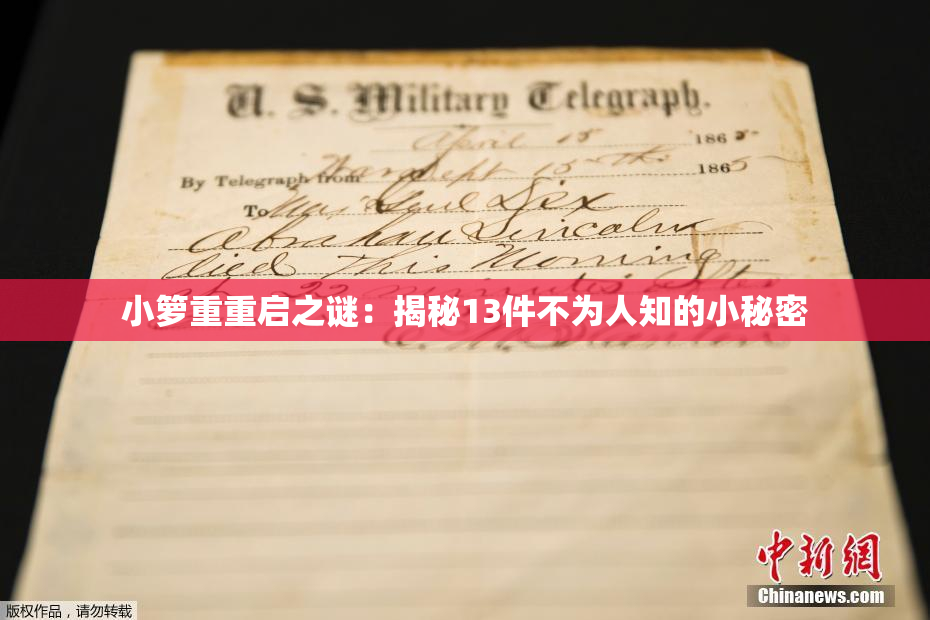 U. S. Military Telegraph.
April 15 1865-
By Telegraph from War Dept 15th 1865
To Maj Genl Dix
Abraham Lincoln
died This Morning
at 22 minutes after
小箩重重启之谜：揭秘13件不为人知的小秘密
E. M. Stanton
中新网
Chinanews.com
版权作品，请勿转载